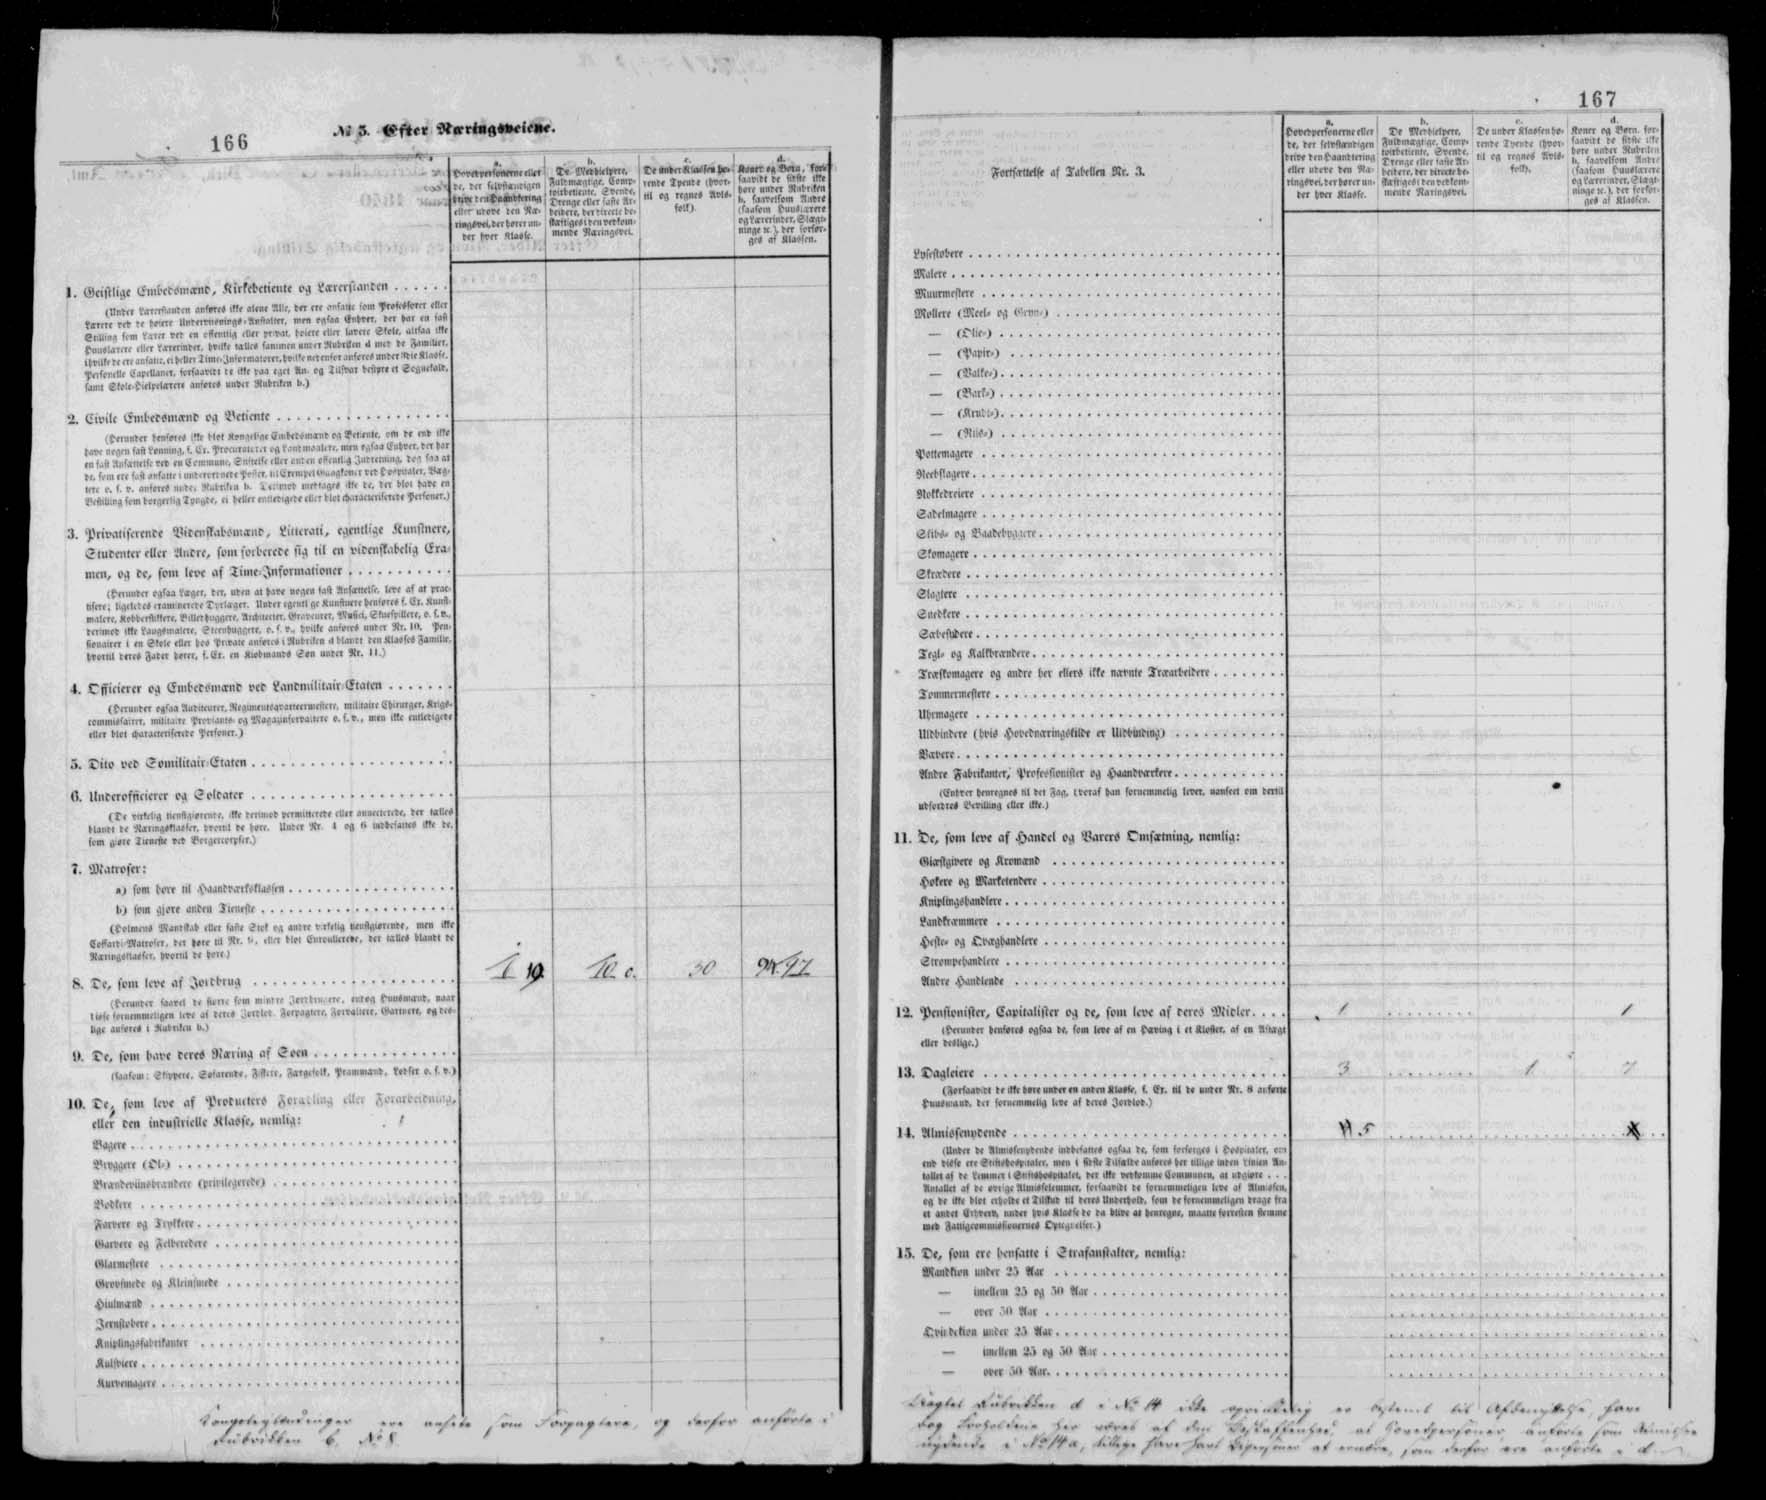 166
№ 3. Efter Næringsveiene.
a.
Hovedpersonerne eller
de, der selvstændigen
drive den Haandtering
eller udøve den Næ-
ringsvei, der hører un-
der hver Klasse.
b.
De Medhielpere,
Fuldmægtige, Comp-
toirbetiente, Svende,
Drenge eller faste Ar-
beidere, der directe be-
skæftiges i den vedkom-
mende Næringsvei.
c.
De under Klassen hø-
rende Tyende (hvor-
til og regnes Avls-
folk).
d.
Koner og Børn, for-
saavidt de sidste ikke
høre under Rubriken
b, saavelsom Andre
(saasom Huuslærere
og Lærerinder, Slægt-
ninge ꝛc.), der forsør-
ges af Klassen.
1. Geistlige Embedsmænd, Kirkebetiente og Lærerstanden
(Under Lærerstanden anføres ikke alene Alle, der ere ansatte som Professorer eller
Lærere ved de høiere Underviisnings-Anstalter, men ogsaa Enhver, der har en fast
Stilling som Lærer ved en offentlig eller privat, høiere eller lavere Skole, altsaa ikke
Huuslærere eller Lærerinder, hvilke tælles sammen under Rubriken d med de Familier,
i hvilke de ere ansatte, ei heller Time-Informatorer, hvilke nedenfor anføres under 3die Klasse.
Personelle Capellaner, forsaavidt de ikke paa eget An- og Tilsvar bestyre et Sognekald,
samt Skole-Hielpelærere anføres under Rubriken b.)
2. Civile Embedsmænd og Betiente
(Herunder henføres ikke blot Kongelige Embedsmænd og Betiente, om de end ikke
have nogen fast Lønning, f. Ex. Procuratorer og Landmaalere, men ogsaa Enhver, der har
en fast Ansættelse ved en Commune, Stiftelse eller anden offentlig Indretning, dog saa at
de, som ere fast ansatte i underordnede Poster, til Exempel Gangkoner ved Hospitaler, Væg-
tere o. s. v. anføres under Rubriken b. Derimod medtages ikke de, der blot have en
Bestilling som borgerlig Tyngde, ei heller entledigede eller blot characteriserede Personer.)
3. Privatiserende Videnskabsmænd, Litterati, egentlige Kunstnere,
Studenter eller Andre, som forberede sig til en videnskabelig Exa-
men, og de, som leve af Time-Informationer
(Herunder ogsaa Læger, der, uden at have nogen fast Ansættelse, leve af at prac-
tisere; ligeledes examinerede Dyrlæger. Under egentlige Kunstnere henføres f. Ex. Kunst-
malere, Kobberstikkere, Billedhuggere, Architecter, Graveurer, Musici, Skuespillere, o. s. v.,
derimod ikke Laugsmalere, Steenhuggere, o. s. v., hvilke anføres under Nr. 10. Pen-
sionairer i en Skole eller hos Private anføres i Rubriken d blandt den Klasses Familie,
hvortil deres Fader hører, f. Ex. en Kiøbmands Søn under Nr. 11.)
4. Officierer og Embedsmænd ved Landmilitair-Etaten
(Herunder ogsaa Auditeurer, Regimentsqvarteermestere, militaire Chirurger, Krigs-
commissairer, militaire Proviants- og Magazinforvaltere o. s. v., men ikke entledigede
eller blot characteriserede Personer.)
5. Dito ved Sømilitair-Etaten
6. Underofficierer og Soldater
(De virkelig tienstgiørende, ikke derimod permitterede eller annecterede, der tælles
blandt de Næringsklasser, hvortil de høre. Under Nr. 4 og 6 indbefattes ikke de,
som giøre Tieneste ved Borgercorpser.)
7. Matroser:
a) som høre til Haandværksklassen
b) som giøre anden Tieneste
(Holmens Mandskab eller faste Stok og andre virkelig tienstgiørende, men ikke
Coffardi-Matroser, der høre til Nr. 9, eller blot Enroullerede, der tælles blandt de
Næringsklasser, hvortil de høre.)
8. De, som leve af Jordbrug 10 30 97
(Herunder saavel de større som mindre Jordbrugere, endog Huusmænd, naar
disse fornemmeligen leve af deres Jordlod. Forpagtere, Forvaltere, Gartnere, og des-
lige anføres i Rubriken b.)
9. De, som have deres Næring af Søen
(saasom: Skippere, Søfarende, Fiskere, Færgefolk, Prammænd, Lodser o. s. v.)
10. De, som leve af Producters Forædling eller Forarbeidning,
eller den industrielle Klasse, nemlig:
Bagere
Bryggere (Øl-)
Brændeviinsbrændere (privilegerede)
Bødkere
Farvere og Trykkere
Garvere og Felberedere
Glarmestere
Grovsmede og Kleinsmede
Hiulmænd
Jernstøbere
Kniplingsfabrikanter
Kulsviere
Kurvemagere
Kongetiendinger ere ansete som Forpagtere, og derfor anførte i
Rubrikken b, No 8
167
Fortsættelse af Tabellen Nr. 3.
a.
Hovedpersonerne eller
de, der selvstændigen
drive den Haandtering
eller udøve den Næ-
ringsvei, der hører un-
der hver Klasse.
b.
De Medhielpere,
Fuldmægtige, Comp-
toirbetiente, Svende,
Drenge eller faste Ar-
beidere, der directe be-
skæftiges i den vedkom-
mende Næringsvei.
c.
De under Klassen hø-
rende Tyende (hvor-
til og regnes Avls-
folk).
d.
Koner og Børn, for-
saavidt de sidste ikke
høre under Rubriken
b, saavelsom Andre
(saasom Huuslærere
og Lærerinder, Slægt-
ninge ꝛc.), der forsør-
ges af Klassen.
Lysestøbere
Malere
Muurmestere
Møllere (Meel- og Gryn-)
— (Olie-)
— (Papir-)
— (Valke-)
— (Bark-)
— (Krudt-)
— (Riis-)
Pottemagere
Reebslagere
Rokkedreiere
Sadelmagere
Skibs- og Baadebyggere
Skomagere
Skrædere
Slagtere
Snedkere
Sæbesydere
Tegl- og Kalkbrændere
Træskomagere og andre her ellers ikke nævnte Træarbeidere
Tømmermestere
Uhrmagere
Uldbindere (hvis Hovednæringskilde er Uldbinding)
Vævere
Andre Fabrikanter, Professionister og Haandværkere
(Enhver henregnes til det Fag, hvoraf han fornemmelig lever, uanseet om dertil
udfordres Bevilling eller ikke.)
11. De, som leve af Handel og Varers Omsætning, nemlig:
Giæstgivere og Kromænd
Høkere og Marketendere
Kniplingshandlere
Landkræmmere
Heste- og Qvæghandlere
Strømpehandlere
Andre Handlende
12. Pensionister, Capitalister og de, som leve af deres Midler 1 1
(Herunder henføres ogsaa de, som leve af en Hæving i et Kloster, af en Aftægt
eller deslige.)
13. Dagleiere 3 1 7
(Forsaavidt de ikke høre under en anden Klasse, f. Ex. til de under Nr. 8 anførte
Huusmænd, der fornemmelig leve af deres Jordlod.)
14. Almissenydende 5
(Under de Almissenydende indbefattes ogsaa de, som forsørges i Hospitaler, om
end disse ere Stiftshospitaler, men i sidste Tilfælde anføres her tillige inden Linien An-
tallet af de Lemmer i Stiftshospitalet, der ikke vedkomme Communen, at udgiøre . . .
Antallet af de øvrige Almisselemmer, forsaavidt de fornemmeligen leve af Almissen,
og de ikke blot erholde et Tilskud til deres Underhold, som de fornemmeligen drage fra
et andet Erhverv, under hvis Klasse de da blive at henregne, maatte forresten stemme
med Fattigcommissionernes Optegnelser.)
15. De, som ere hensatte i Strafanstalter, nemlig:
Mandkiøn under 25 Aar
— imellem 25 og 50 Aar
— over 50 Aar
Qvindekiøn under 25 Aar
— imellem 25 og 50 Aar
— over 50 Aar.
Uagtet Rubrikken d i No 14 ikke oprindelig er bestemt til Afbenyttelse, have
dog Forholdene her været af den Beskaffenhed, at Hovedpersoner, anførte som Almisse
nydende i No 14 a, tillige have havt Personer at ernære, som derfor ere anførte i d